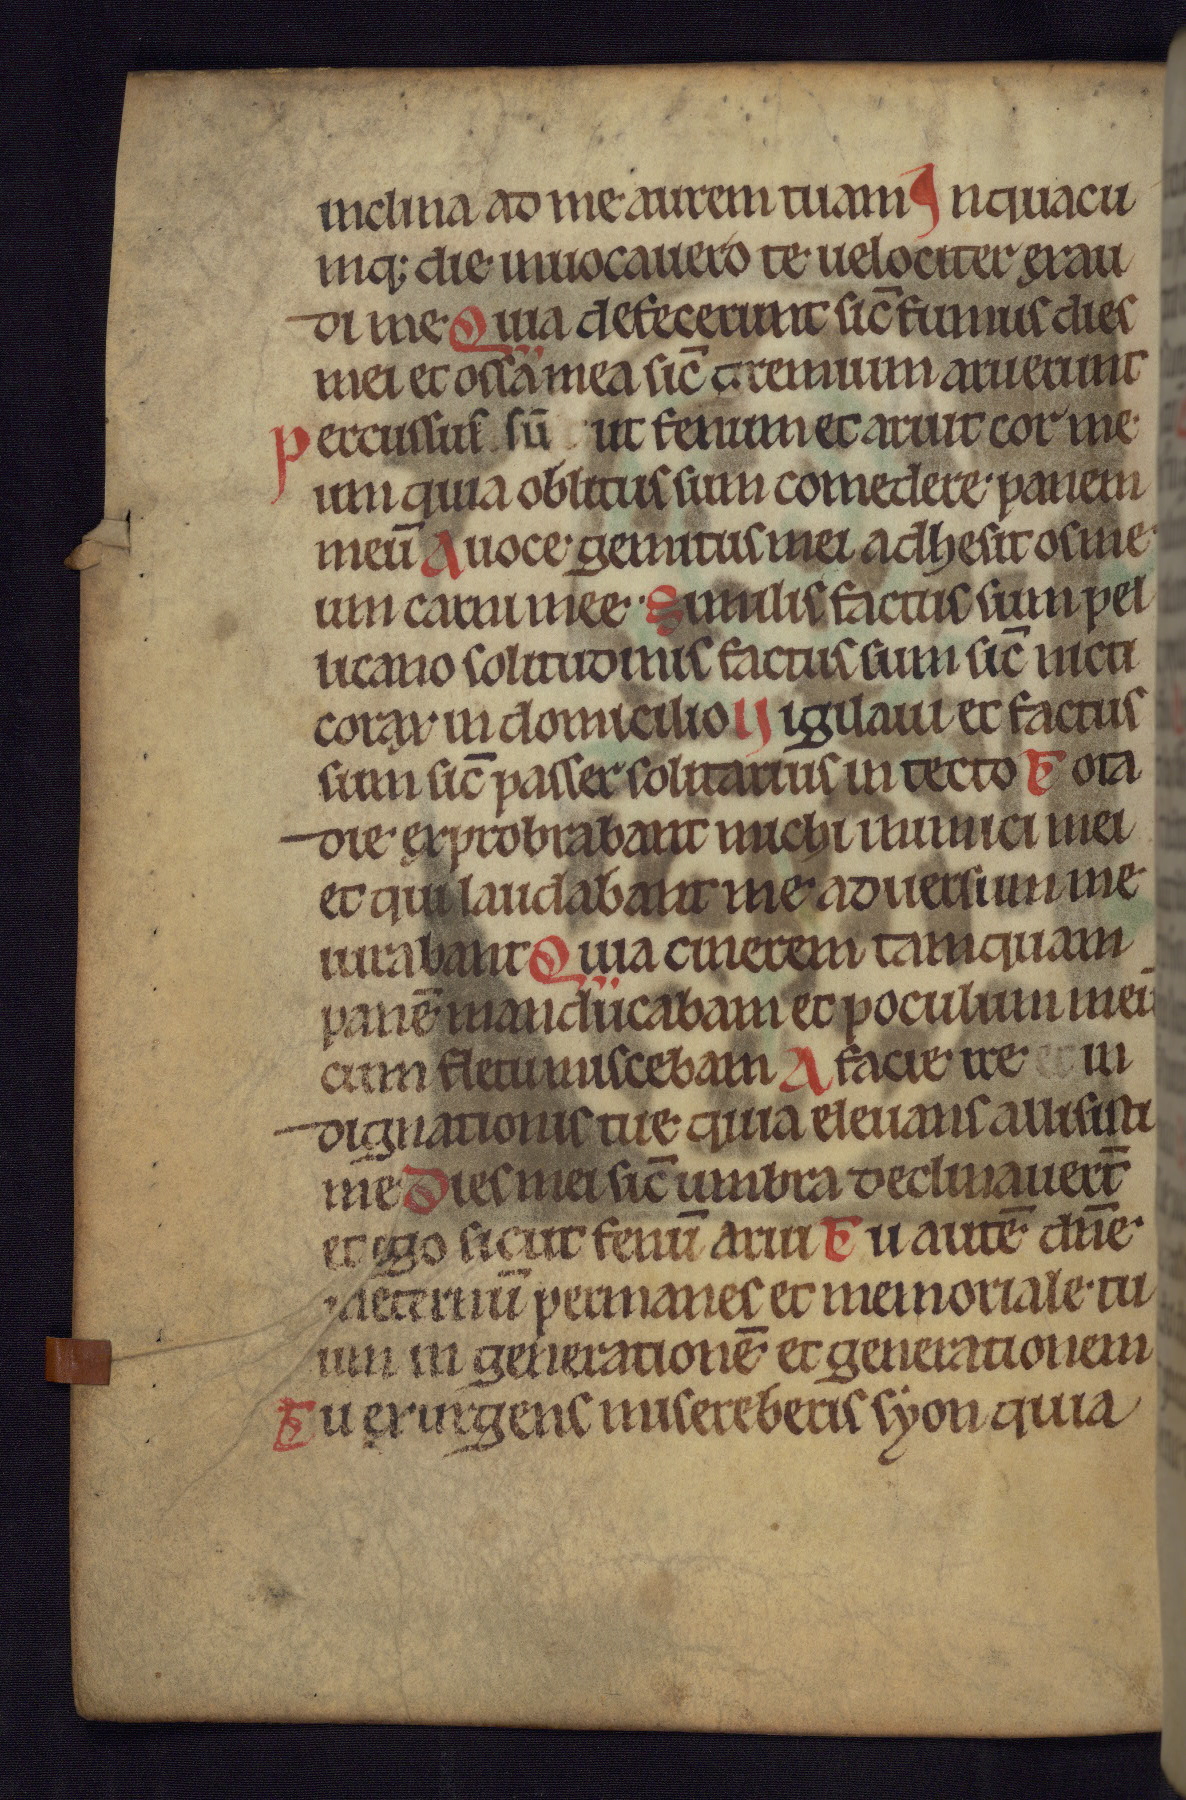 inclina ad me aurem tuam In quacu
mq; die inuocauero te uelociter exau
di me Quia defecerunt sic̄ fumus dies
mei et ossa mea sic̄ gremium aruerunt
Percussus sū ut fenum et aruit cor me
um quia oblitus sum comedere panem
meū A uoce gemitus mei adhesit os me
um carni mee Similis factus sum pel
licano solitudinis factus sum sic̄ nicti
corax in domicilio Uigilaui et factus
sum sic̄ passer solitarius in tecto Tota
die exprobrabant michi inimici mei
et qui laudabant me aduersum me
iurabant Quia cinerem tamquam
panē manducabam et poculum meū
cum fletu miscebam A facie ire et in
dignationis tue quia eleuans allisisti
me Dies mei sic̄ umbra declinauerт̄
et ego sicut fenū arui Tu autē dn̄e
aeternū permanes et memoriale tu
um in generationē et generationem
Tu exurgens misereberis syon quia